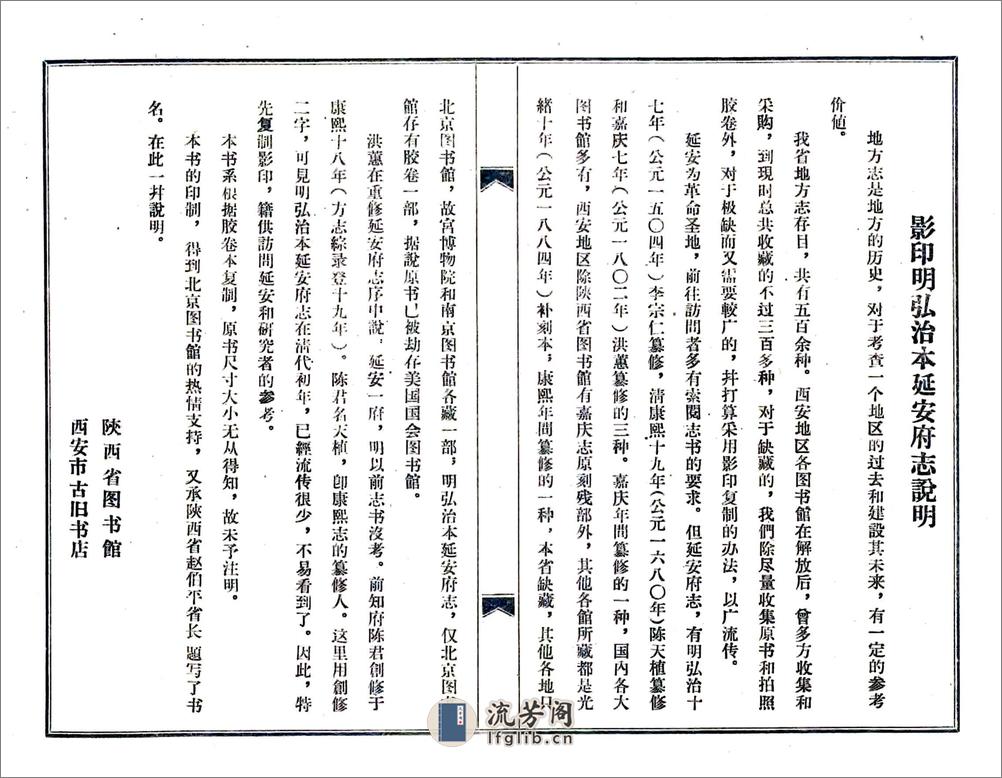 影印明弘治本延安府志說明
地方志是地方的历史，对于考查一个地区的过去和建設其未来，有一定的参考
价值。
我省地方志存日，共有五百余种。西安地区各图书館在解放后，曾多方收集和
采购，到現时总共收藏的不过三百多种，对于缺藏的，我們除尽量收集原书和拍照
胶卷外，对于极缺而又需要較广的，幷打算采用影印复制的办法，以广流传。
延安为革命圣地，前往訪問者多有索閱志书的要求。但延安府志，有明弘治十
七年（公元一五〇四年）李宗仁纂修，清康熙十九年（公元一六八〇年）陈天植纂修
和嘉庆七年（公元一八〇二年）洪蕙纂修的三种。嘉庆年間纂修的一种，国内各大
图书館多有，西安地区除陝西省图书館有嘉庆志原刻残部外，其他各館所藏都是光
緒十年（公元一八八四年）补刻本，康熙年間纂修的一种，本省缺藏，其他各地只
北京图书館，故宮博物院和南京图书館各藏一部，明弘治本延安府志，仅北京图书
館存有胶卷一部，据說原书已被劫存美国国会图书館。
洪蕙在重修延安府志序中說，延安一府，明以前志书沒考。前知府陈君創修于
康熙十八年（方志綜录登十九年）。陈君名天植，卽康熙志的纂修人。这里用創修
二字，可見明弘治本延安府志在清代初年，已經流传很少，不易看到了。因此，特
先复制影印，籍供訪問延安和研究者的参考。
本书系根据胶卷本复制，原书尺寸大小无从得知，故未予注明。
本书的印制，得到北京图书館的热情支持，又承陝西省赵伯平省长題写了书
名。在此一幷說明。
陝西省图书館
西安市古旧书店
流芳阁
lfglib.cn